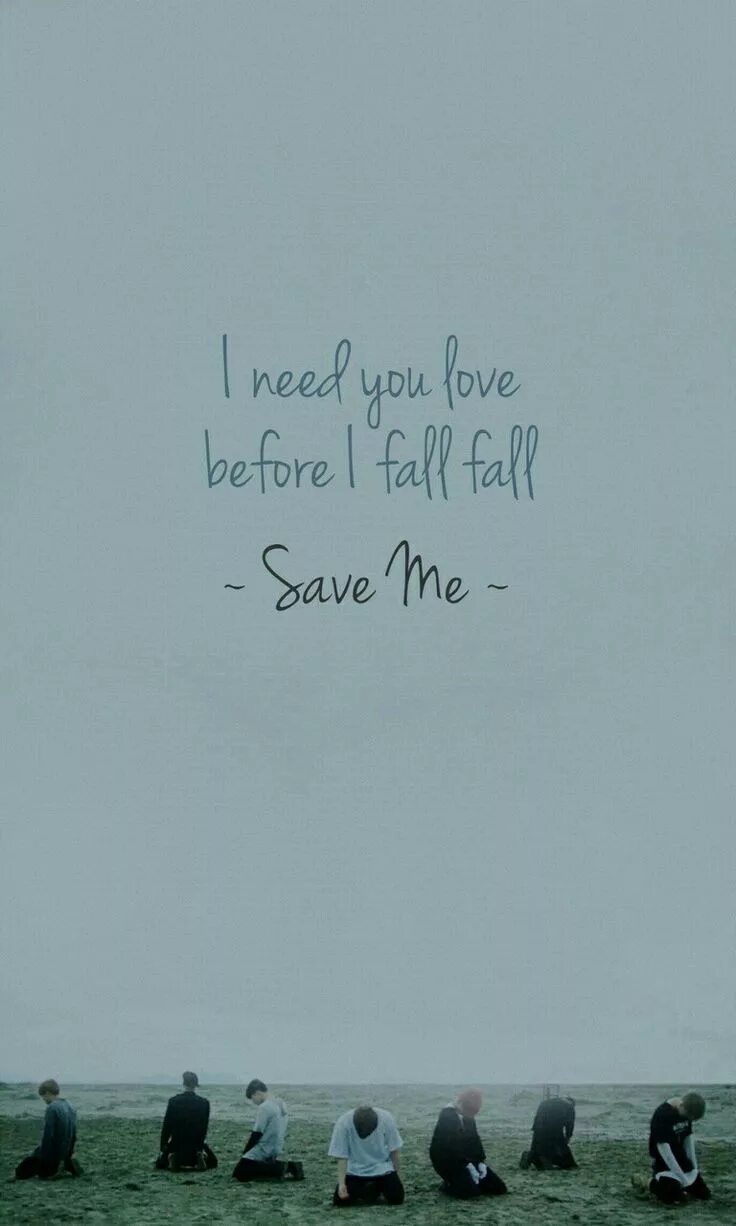 I need you love
before I fall fall
~ Save Me ~